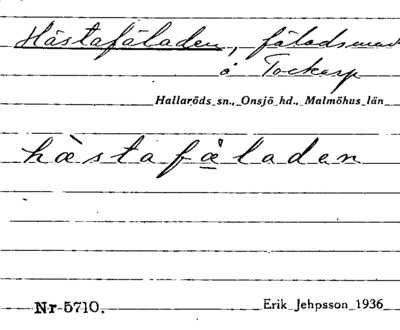 Hästafäladen, fäladsmark
å Tockarp
Hallaröds sn., Onsjö hd., Malmöhus län
hàstafàladen
Nr 5710.
Erik Jehpsson 1936